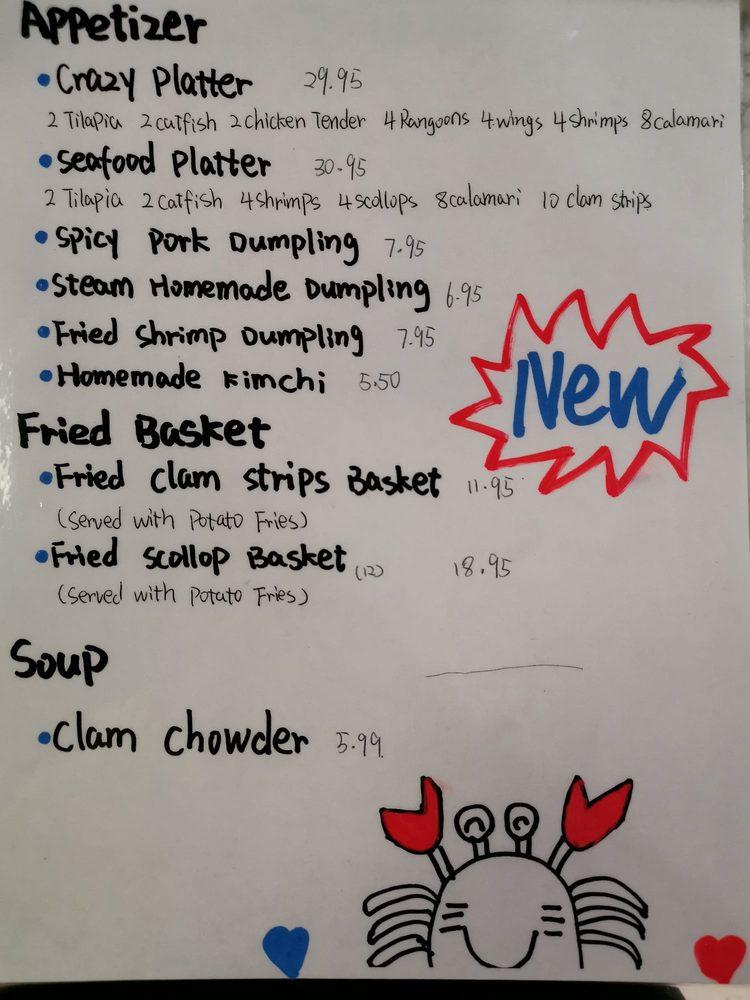 Appetizer
•Crazy Platter 29.95
2 Tilapia 2 catfish 2 chicken Tender 4 Rangoons 4 wings 4 shrimps 8 calamari
•Seafood Platter 30.95
2 Tilapia 2 catfish 4 shrimps 4 scollops 8 calamari 10 clam strips
•Spicy Pork Dumpling 7.95
•Steam Homemade Dumpling 6.95
•Fried Shrimp Dumpling 7.95
•Homemade Kimchi 5.50
New
Fried Basket
•Fried clam strips Basket 11.95
(Served with Potato Fries)
•Fried Scollop Basket (12) 18.95
(Served with Potato Fries)
Soup
•Clam Chowder 5.99